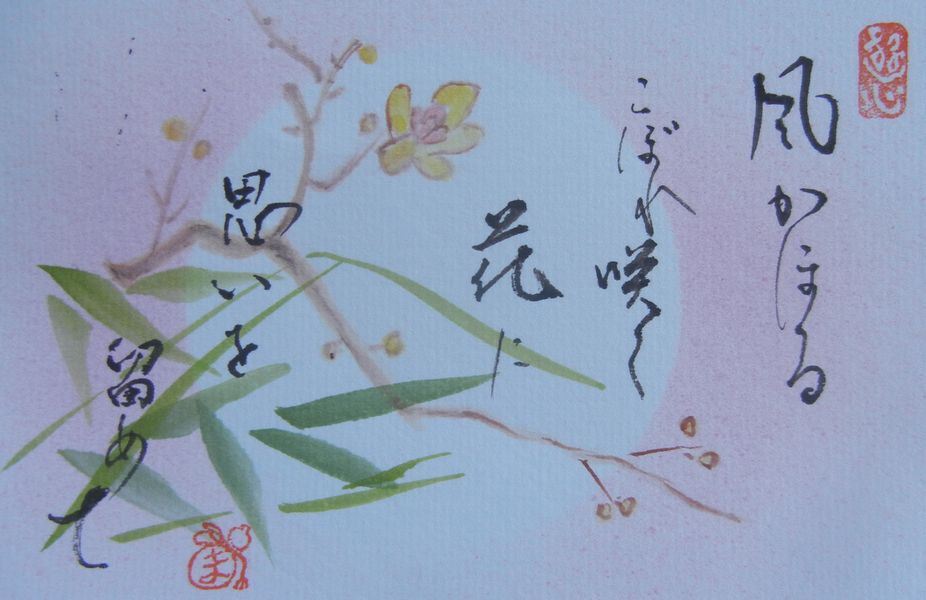 風かほる
こぼれ咲く
花に
思いを
留めて
遊心
ま